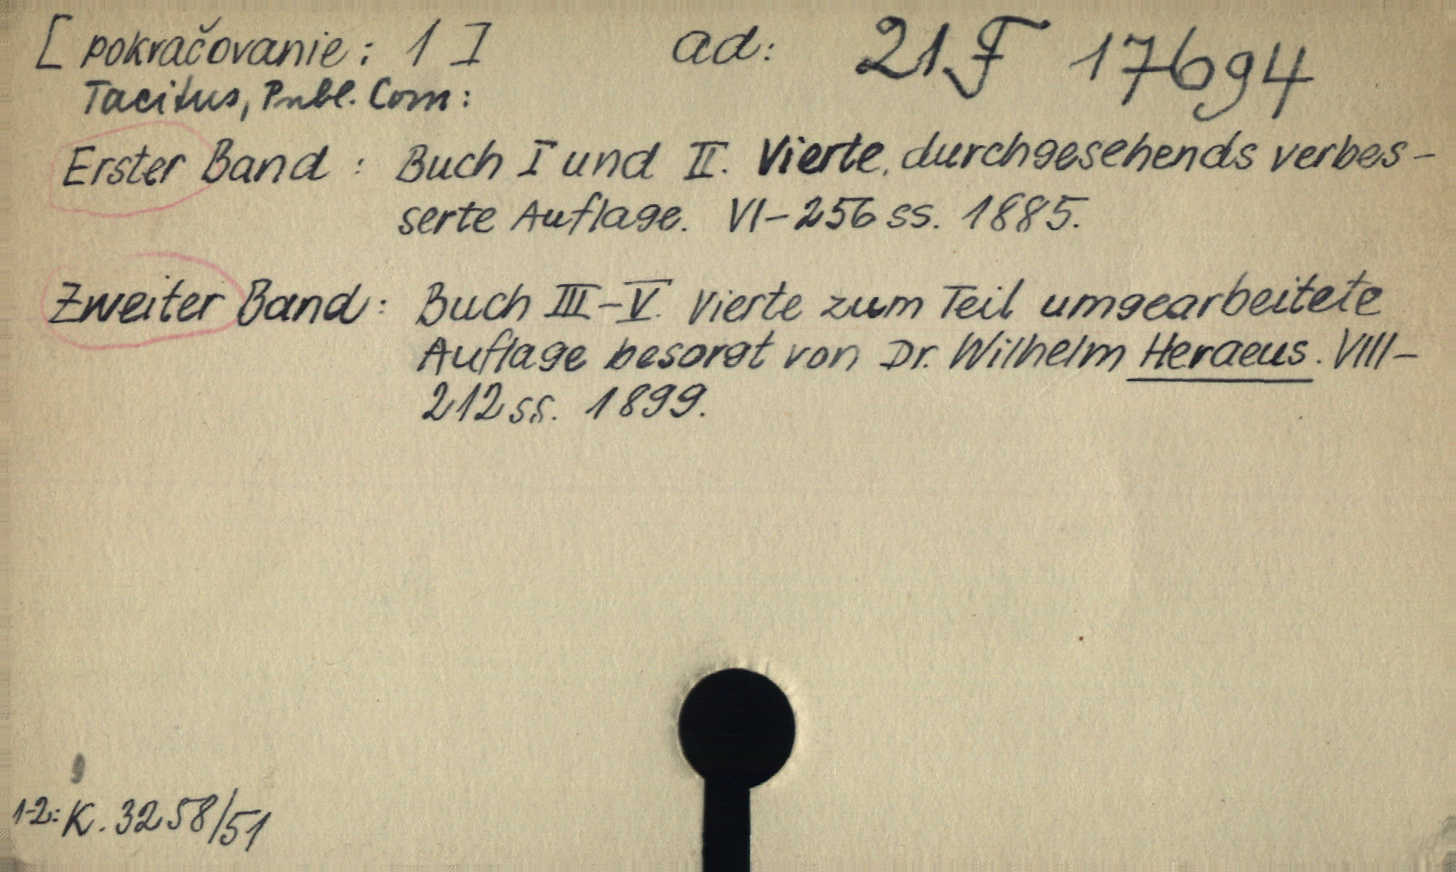 [ pokračovanie: 1 ] ad: 21 F 17694
Tacitus, Publ. Corn:
Erster Band: Buch I und II. Vierte, durchgesehends verbes-
serte Auflage. VI-256 ss. 1885.
Zweiter Band: Buch III-V. Vierte zum Teil umgearbeitete
Auflage besorgt von Dr. Wilhelm Heraeus. VIII-
212 ss. 1899.
9
1-2: K. 3258/51